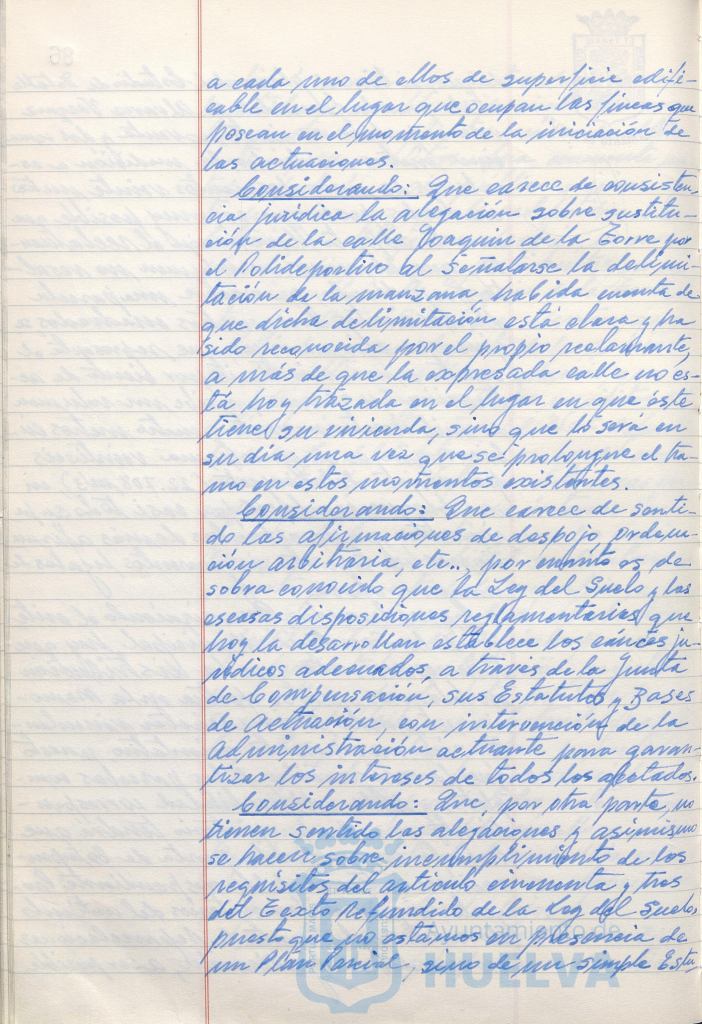 a cada uno de ellos de superficie edifi-
cable en el lugar que ocupan las fincas que
posean en el momento de la iniciación de
las actuaciones.
Considerando: Que carece de consisten-
cia jurídica la alegación sobre sustitu-
ción de la calle Joaquin de la Torre por
el Polideportivo al señalarse la delimi-
tación de la manzana, habida cuenta de
que dicha delimitación está clara y ha
sido reconocida por el propio reclamante,
a más de que la expresada calle no es-
tá hoy trazada en el lugar en que éste
tiene su vivienda, sino que lo será en
su día una vez que se prolongue el tra-
mo en estos momentos existentes.
Considerando: Que carece de senti-
do las afirmaciones de despojo, ordena-
ción arbitraria, etc.., por cuanto es de
sobra conocido que la Ley del Suelo y las
escasas disposiciones reglamentarias que
hoy la desarrollan establece los cauces ju-
rídicos adecuados, a través de la Junta
de Compensación, sus Estatutos y Bases
de Actuación, con intervención de la
Administración actuante para garan-
tizar los intereses de todos los afectados.
Considerando: Que, por otra parte, no
tienen sentido las alegaciones y asimismo
se hacen sobre incumplimiento de los
requisitos del artículo cincuenta y tres
del Texto Refundido de la Ley del Suelo,
puesto que no estamos en presencia de
un Plan Parcial, sino de un simple Estu,
Ayuntamiento de
HUELVA